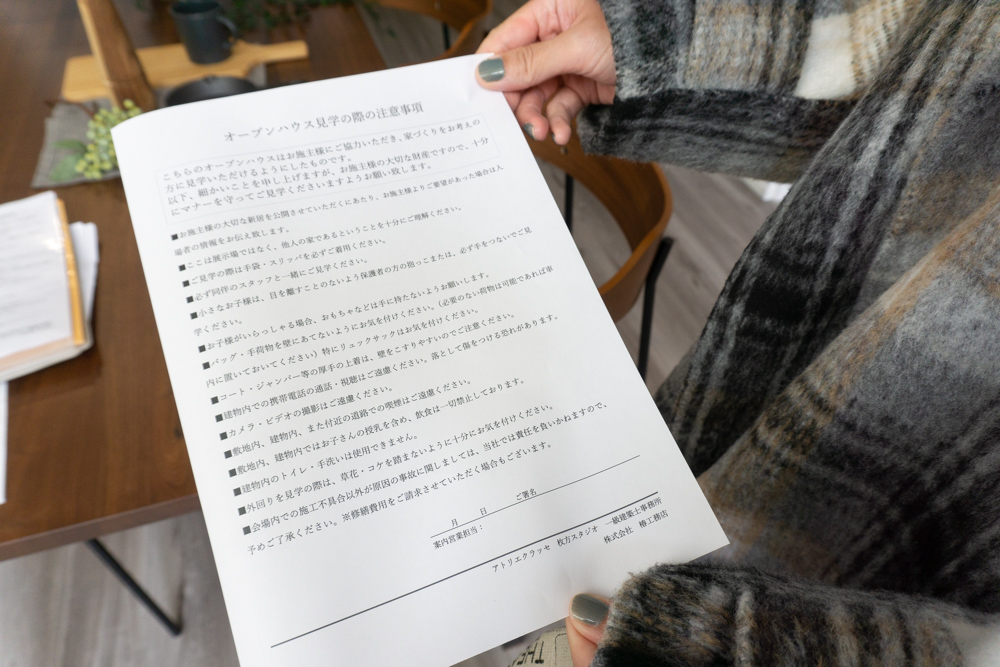 オープンハウス見学の際の注意事項
こちらのオープンハウスはお施主様にご協力いただき、家づくりをお考えの
方に見学いただけるようにしたものです。
以下、細かいことを申し上げますが、お施主様の大切な財産ですので、十分
にマナーを守ってご見学くださいますようお願い致します。
■お施主様の大切な新居を公開させていただくにあたり、お施主様よりご要望があった場合は入
場者の情報をお伝え致します。
■ここは展示場ではなく、他人の家であるということを十分にご理解ください。
■ご見学の際は手袋・スリッパを必ずご着用ください。
■必ず同伴のスタッフと一緒にご見学ください。
■小さなお子様は、目を離すことのないよう保護者の方の抱っこまたは、必ず手をつないでご見
学ください。
■お子様がいらっしゃる場合、おもちゃなどは手に持たないようお願いします。
■バッグ・手荷物を壁にあてないようにお気を付けください。（必要のない荷物は可能であれば車
内に置いておいてください）特にリュックサックはお気を付けください。
■コート・ジャンパー等の厚手の上着は、壁をこすりやすいのでご注意ください。
■建物内での携帯電話の通話・視聴はご遠慮ください。落として傷をつける恐れがあります。
■カメラ・ビデオの撮影はご遠慮ください。
■敷地内、建物内、また付近の道路での喫煙はご遠慮ください。
■敷地内、建物内ではお子さんの授乳を含め、飲食は一切禁止しております。
■建物内のトイレ・手洗いは使用できません。
■外回りを見学の際は、草花・コケを踏まないように十分にお気を付けください。
■会場内での施工不具合以外が原因の事故に関しましては、当社では責任を負いかねますので、
予めご了承ください。※修繕費用をご請求させていただく場合もございます。
月　日　ご署名
案内営業担当：
アトリエクラッセ　枚方スタジオ　一級建築士事務所
株式会社　椿工務店